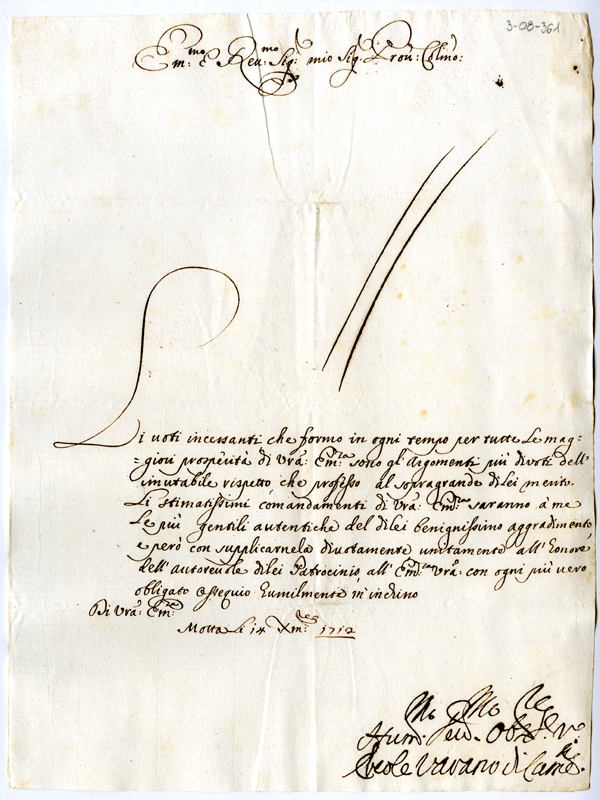 3-08-361
Em:mo E Reu:mo Sig: mio Sig: Prõn: Colmo:
Li uoti incessanti che formo in ogni tempo per tutte le mag-
=giori prosperità di Vrã: Em:za sono gl'Argomenti più diuoti dell'
inutabile rispetto, che professo al sopragrande dilei merito.
Li stimatissimi comandamenti di Vrã: Em:za saranno à me
le più gentili autentiche del dilei benignissimo aggradimento,
e però con supplicarnela diuotamente unitamente all'honore
dell'autoreuole dilei Patrocinio, all'Em:za Vrã: con ogni più uero
obligato ossequio humilmente m'inchino
Di Vrã: Em:za
Motta li 14 Xm:bre 1712
Hum: Seu:
Ercole Varano di Came: